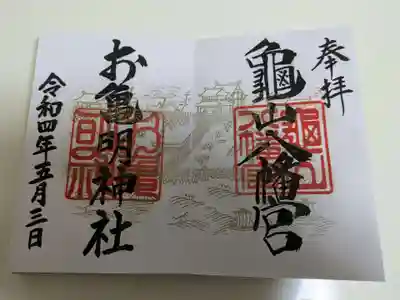 奉拝
龜山八幡宮
お亀明神社
令和四年五月三日